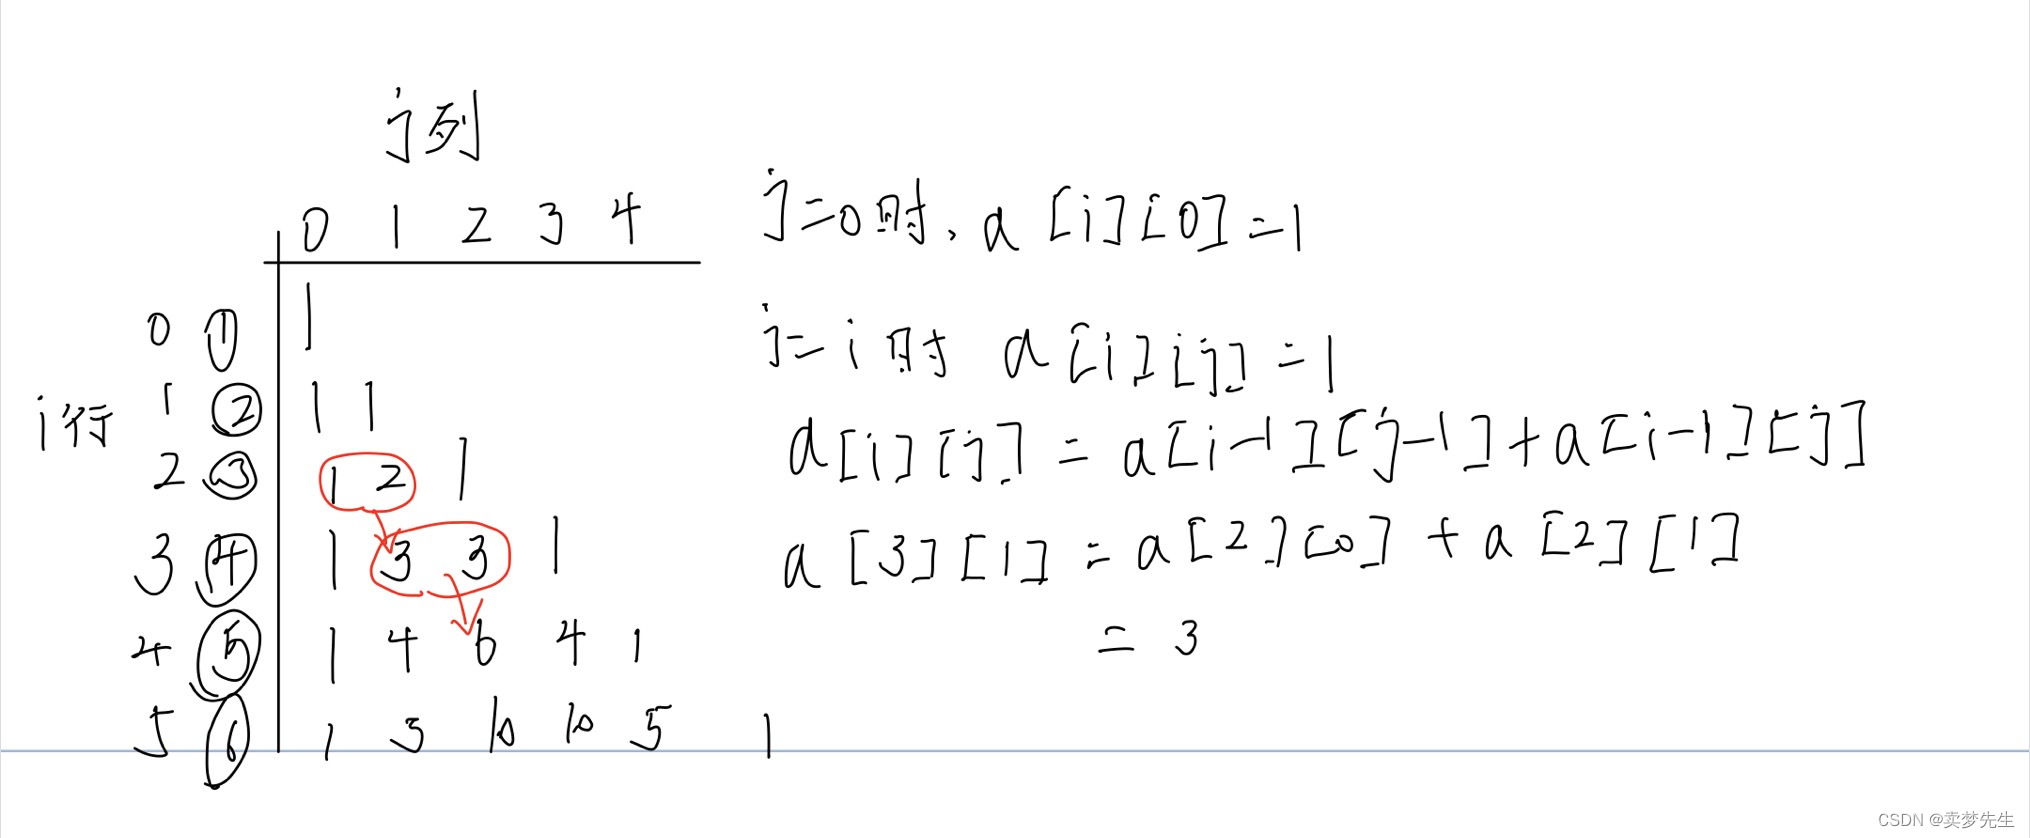 j列
0 1 2 3 4
0 ① 1
i行
1 ② 1 1
2 ③ 1 2 1
3 ④ 1 3 3 1
4 ⑤ 1 4 6 4 1
5 ⑥ 1 5 10 10 5 1
j=0时, a[i][0]=1
j=i时 a[i][j]=1
a[i][j] = a[i-1][j-1]+a[i-1][j]
a[3][1] = a[2][0] + a[2][1]
= 3
CSDN @卖梦先生